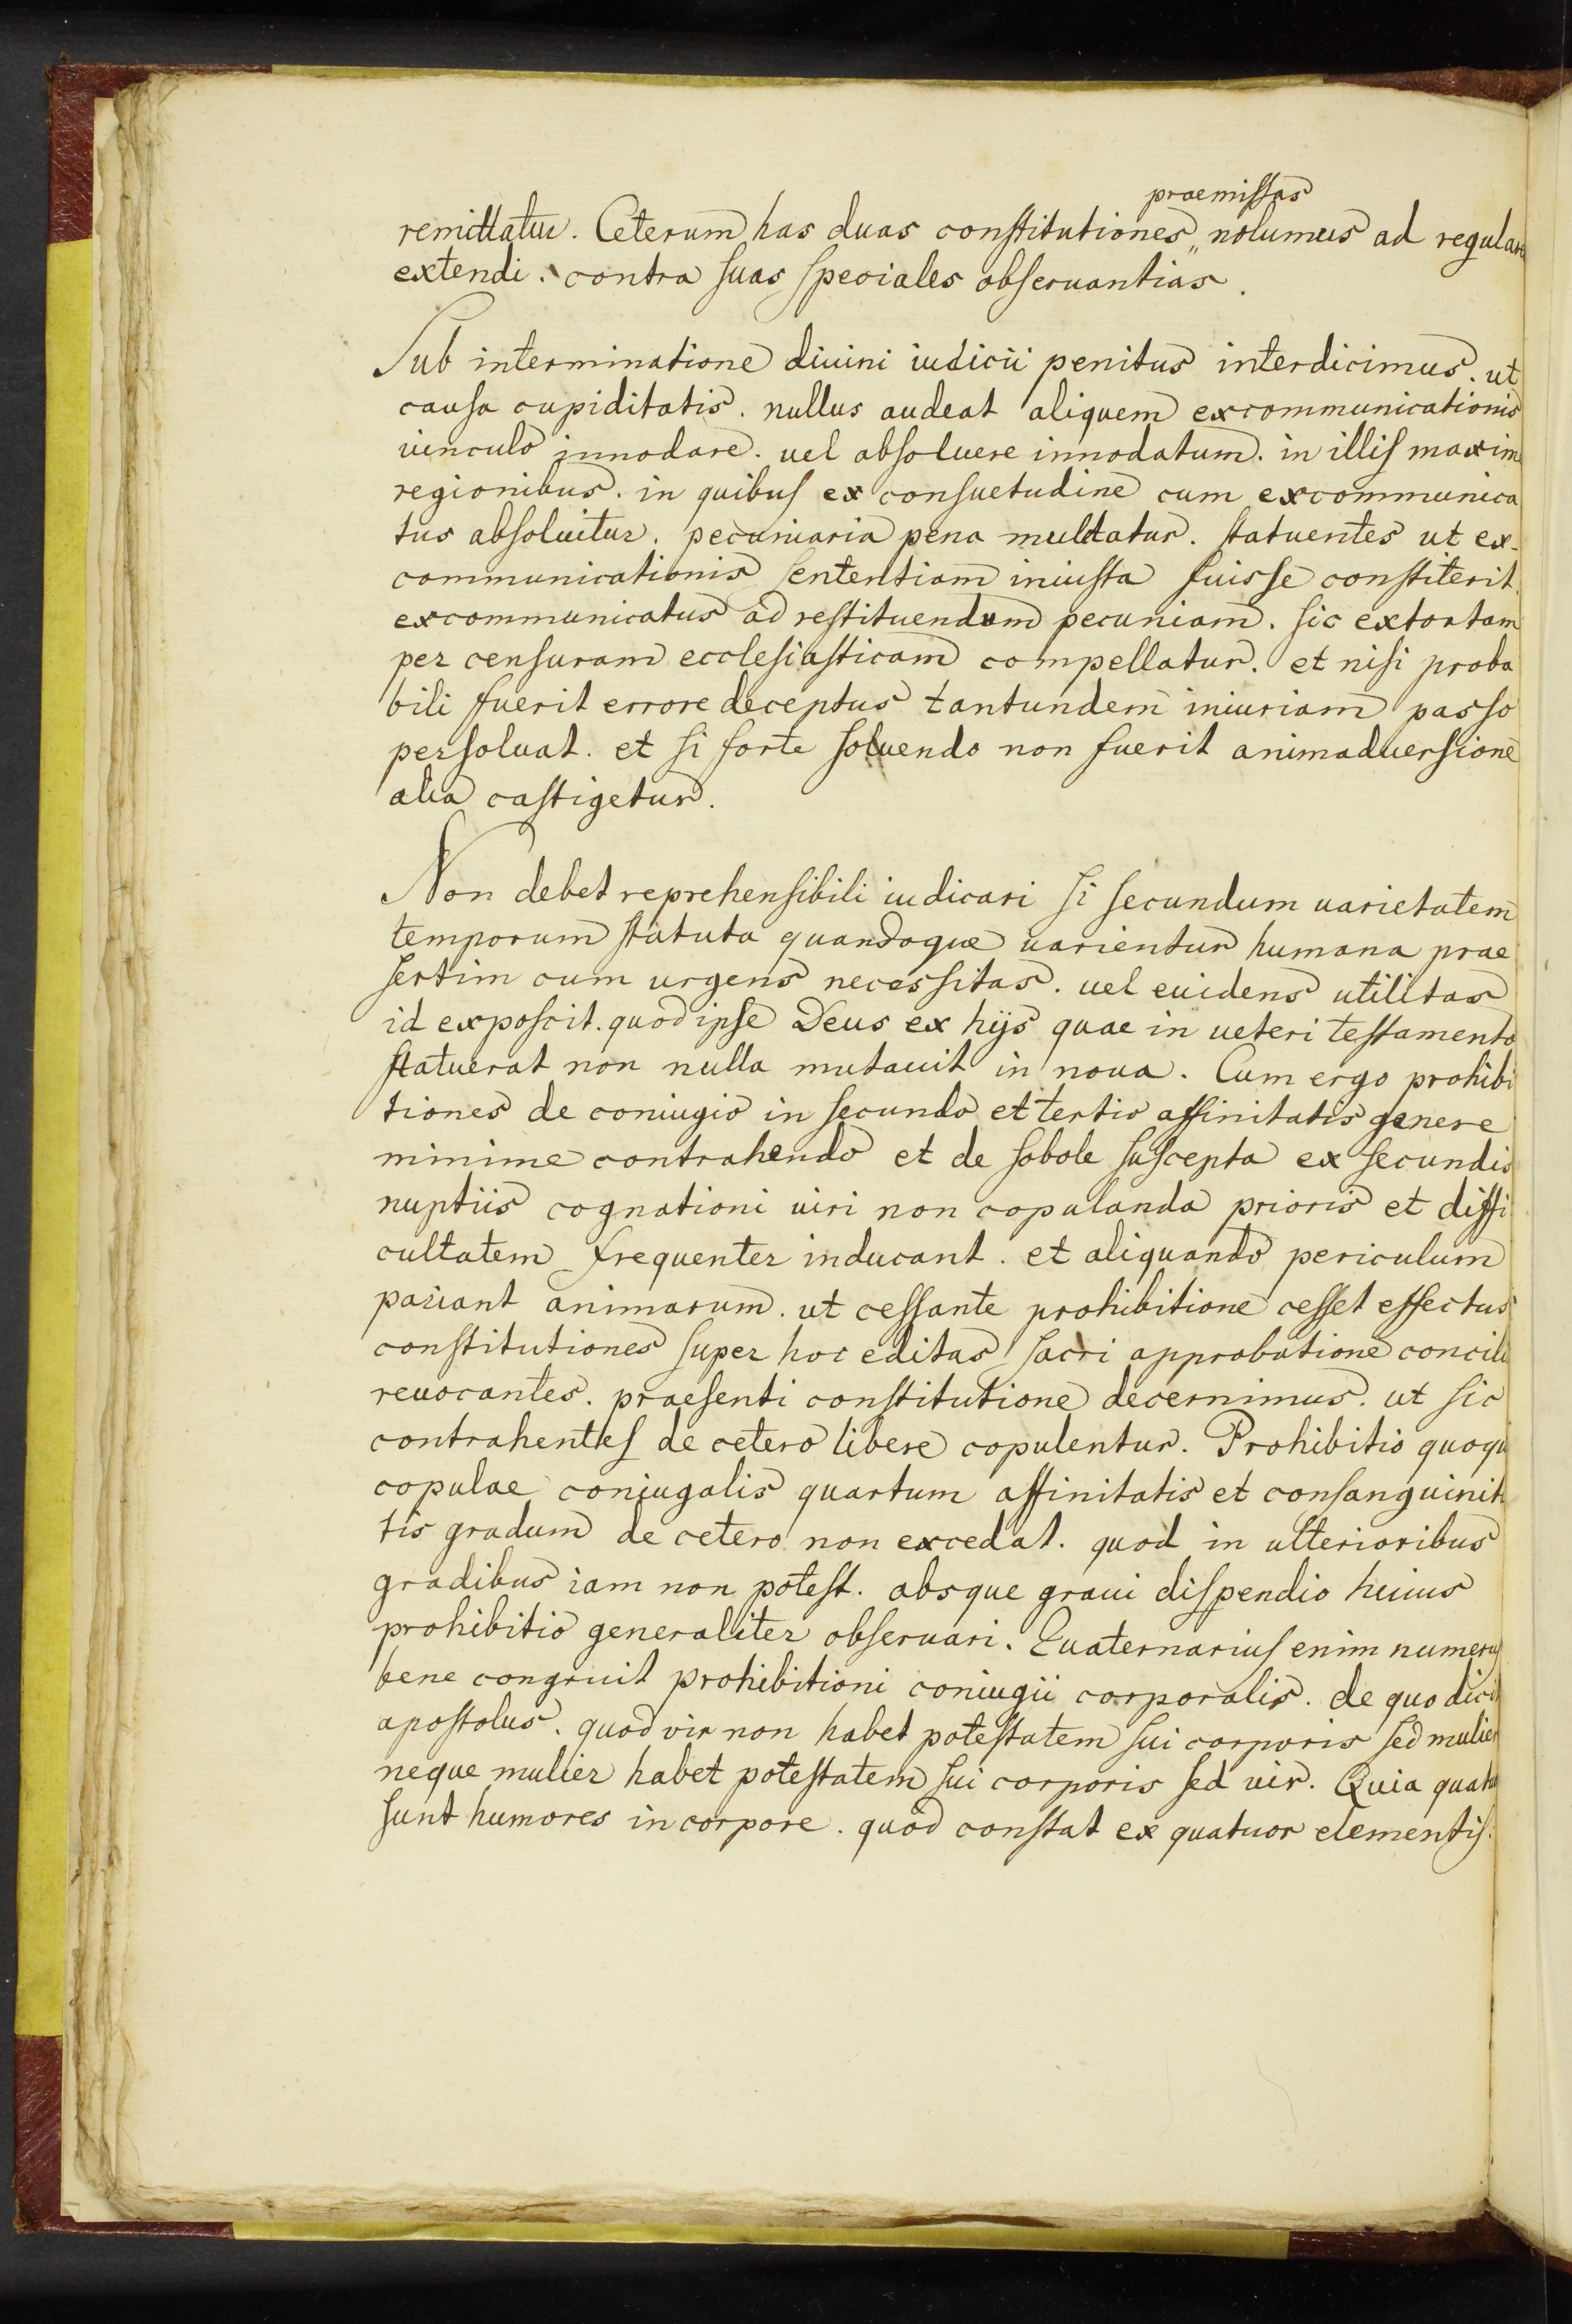 praemiſſas
remittatur. Ceterum has duas conſtitutiones „ nolumus ad regulares
extendi. contra ſuas ſpeciales obſeruantias.
Sub interminatione diuini iudicii penitus interdicimus. ut
cauſa cupiditatis. nullus audeat aliquem excommunicationis
uinculo innodare. uel abſoluere innodatum. in illiſ maxime
regionibus. in quibuſ ex conſuetudine cum excommunica
tus abſoluitur. pecuniaria pena multatur. ſtatuentes ut ex-
communicationis ſententiam iniuſta fuisſe conſtiterit.
excommunicatus ad reſtituendum pecuniam. ſic extortam
per cenſuram eccleſiaſticam compellatur. et niſi proba
bili fuerit errore deceptus tantundem iniuriam pasſo
perſoluat. et ſi forte ſoluendo non fuerit animaduerſione
alia caſtigetur.
Non debet reprehenſibili iudicari ſi ſecundum uarietatem
temporum ſtatuta quandoque uarientur humana prae
ſertim cum urgens necesſitas. uel euidens utilitas
id expoſcit. quod ipſe Deus ex hijs quae in ueteri teſtamento
ſtatuerat non nulla mutauit in noua. Cum ergo prohibi
tiones de coniugio in ſecundo et tertio affinitatis genere
minime contrahendo et de ſobole ſuſcepta ex ſecundis
nuptiis cognationi uiri non copulanda prioris et diffi
cultatem frequenter inducant. et aliquando periculum
pariant animarum. ut ceſſante prohibitione ceſſet effectus
conſtitutiones ſuper hoc editas ſacri approbatione concilii
reuocantes. praeſenti conſtitutione decernimus. ut ſic
contrahenteſ de cetero libere copulentur. Prohibitio quoque
copulae coniugalis quartum affinitatis et conſanguinita
tis gradum de cetero non excedat. quod in ulterioribus
gradibus iam non poteſt. absque graui diſpendio huius
prohibitio generaliter obſeruari. Quaternariuſ enim numerus
bene congruit prohibitioni coniugii corporalis. de quo dicit
apoſtolus. quod vir non habet poteſtatem ſui corporis ſed mulier
neque mulier habet poteſtatem ſui corporis ſed uir. Quia quatuor
ſunt humores in corpore. quod conſtat ex quatuor elementiſ.